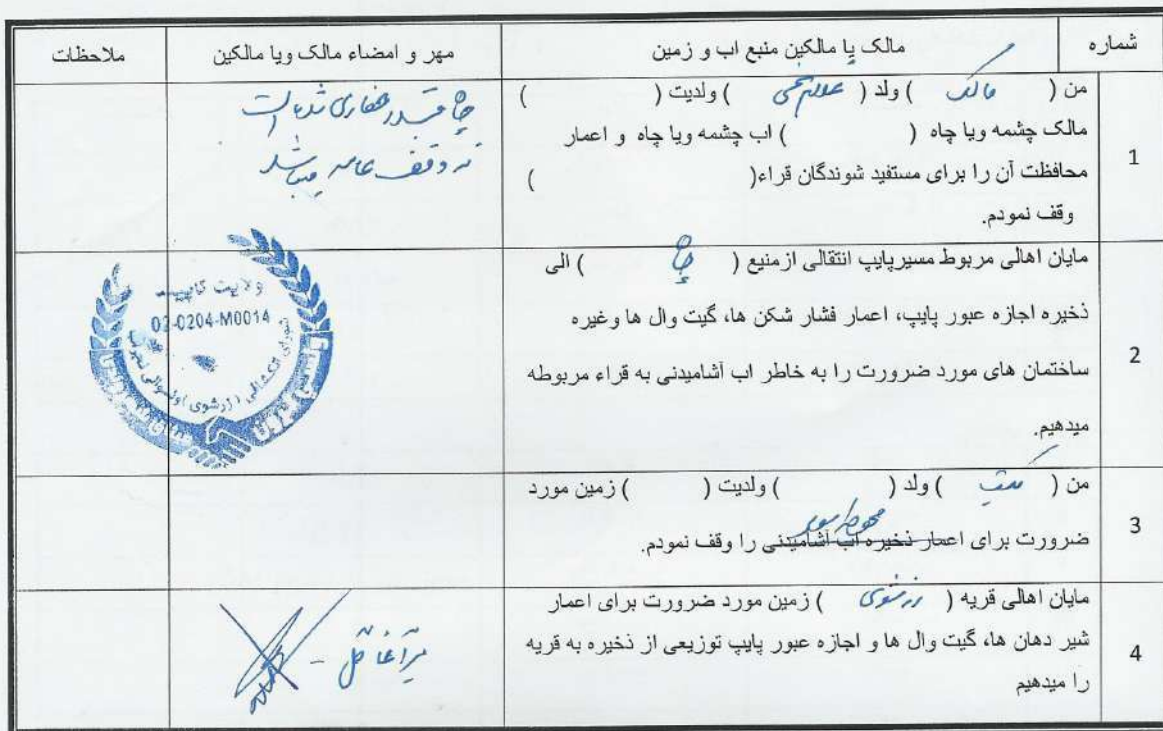 شماره
مالک یا مالکین منبع اب و زمین
مهر و امضاء مالک ویا مالکین
ملاحظات
1
من ( مالک ) ولد ( ) ولدیت ( )
مالک چشمه ویا چاه ( ) اب چشمه ویا چاه و اعمار
محافظت آن را برای مستفید شوندگان قراء( )
وقف نمودم.
چاه قبلا حفاری شده است
وقف عامه میباشد
2
مایان اهالی مربوط مسیرپایپ انتقالی ازمنبع ( چاه ) الی
ذخیره اجازه عبور پایپ، اعمار فشار شکن ها، گیت وال ها وغیره
ساختمان های مورد ضرورت را به خاطر اب آشامیدنی به قراء مربوطه
میدهیم.
ولایت کاپیسا
02-0204-M0014
شورای انکشافی (زرشوی) ولسوالی
3
من ( مکتب ) ولد ( ) ولدیت ( ) زمین مورد
ضرورت برای اعمار ذخیره اب آشامیدنی را وقف نمودم.
4
مایان اهالی قریه ( زرشوی ) زمین مورد ضرورت برای اعمار
شیر دهان ها، گیت وال ها و اجازه عبور پایپ توزیعی از ذخیره به قریه
را میدهیم